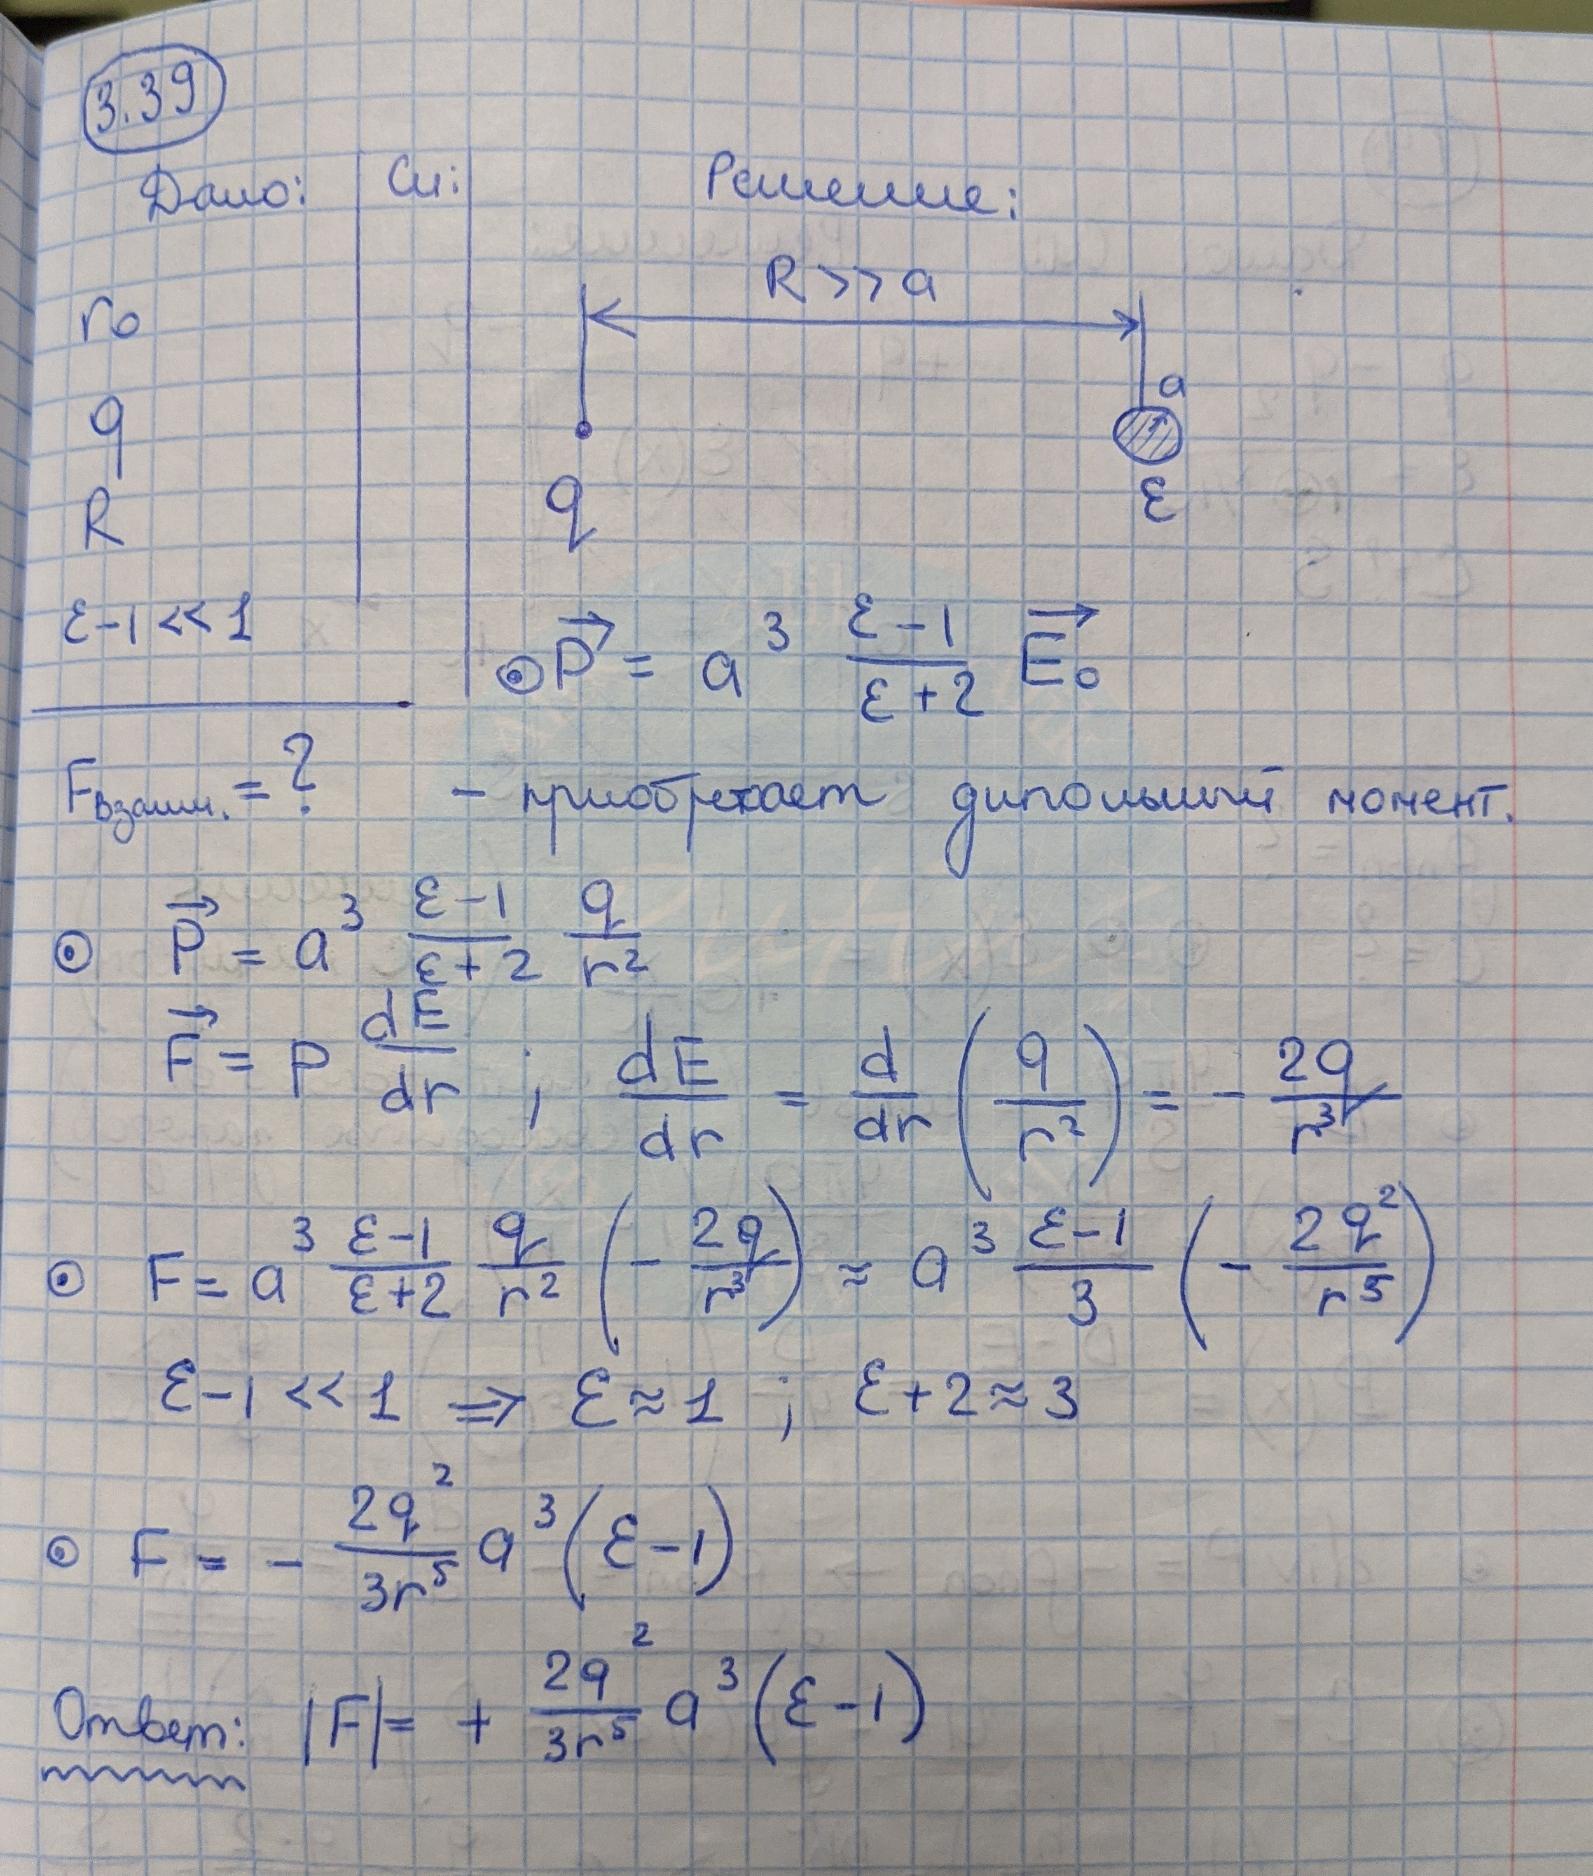 3.39
Дано: Си: Решение:
r₀
q
R
ε-1 << 1
R >> a
a
q
ε
⊙ P⃗ = a³ (ε-1)/(ε+2) E⃗₀
Fвзаим. = ?
- приобретает дипольный момент.
⊙ P⃗ = a³ (ε-1)/(ε+2) q/r²
F⃗ = P dE/dr ; dE/dr = d/dr (q/r²) = - 2q/r³
⊙ F = a³ (ε-1)/(ε+2) q/r² (- 2q/r³) ≈ a³ (ε-1)/3 (- 2q²/r⁵)
ε-1 << 1 ⇒ ε ≈ 1 ; ε+2 ≈ 3
⊙ F = - 2q²/3r⁵ a³ (ε-1)
Ответ: |F| = + 2q²/3r⁵ a³ (ε-1)